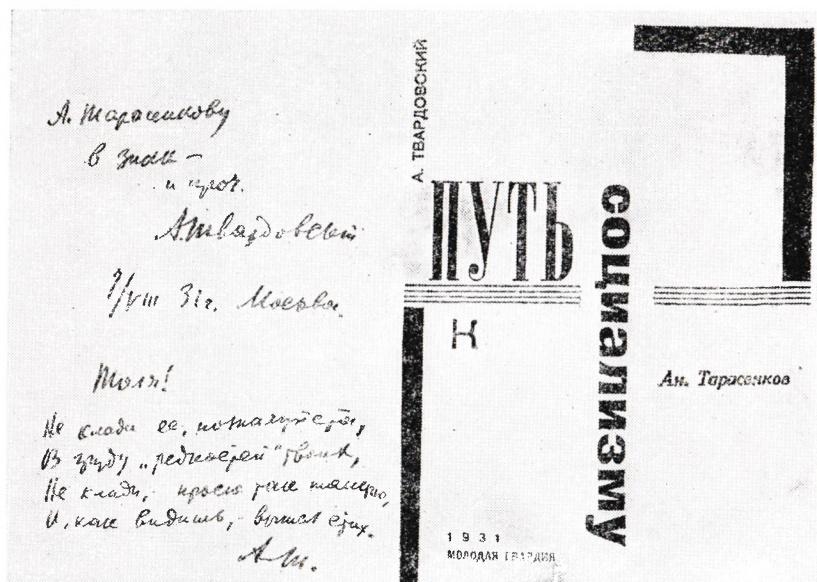 А. Тарасенкову
в знак —
и проч.
А. Твардовский
/VIII 31 г. Москва.
Толя!
Не клади ее, пожалуйста,
В груду „редкостей" твоих,
Не клади, - прошу так
И, как видишь, - вышел стих.
А. Т.
А. ТВАРДОВСКИЙ
ПУТЬ
К
социализму
1931
МОЛОДАЯ ГВАРДИЯ
Ан. Тарасенков